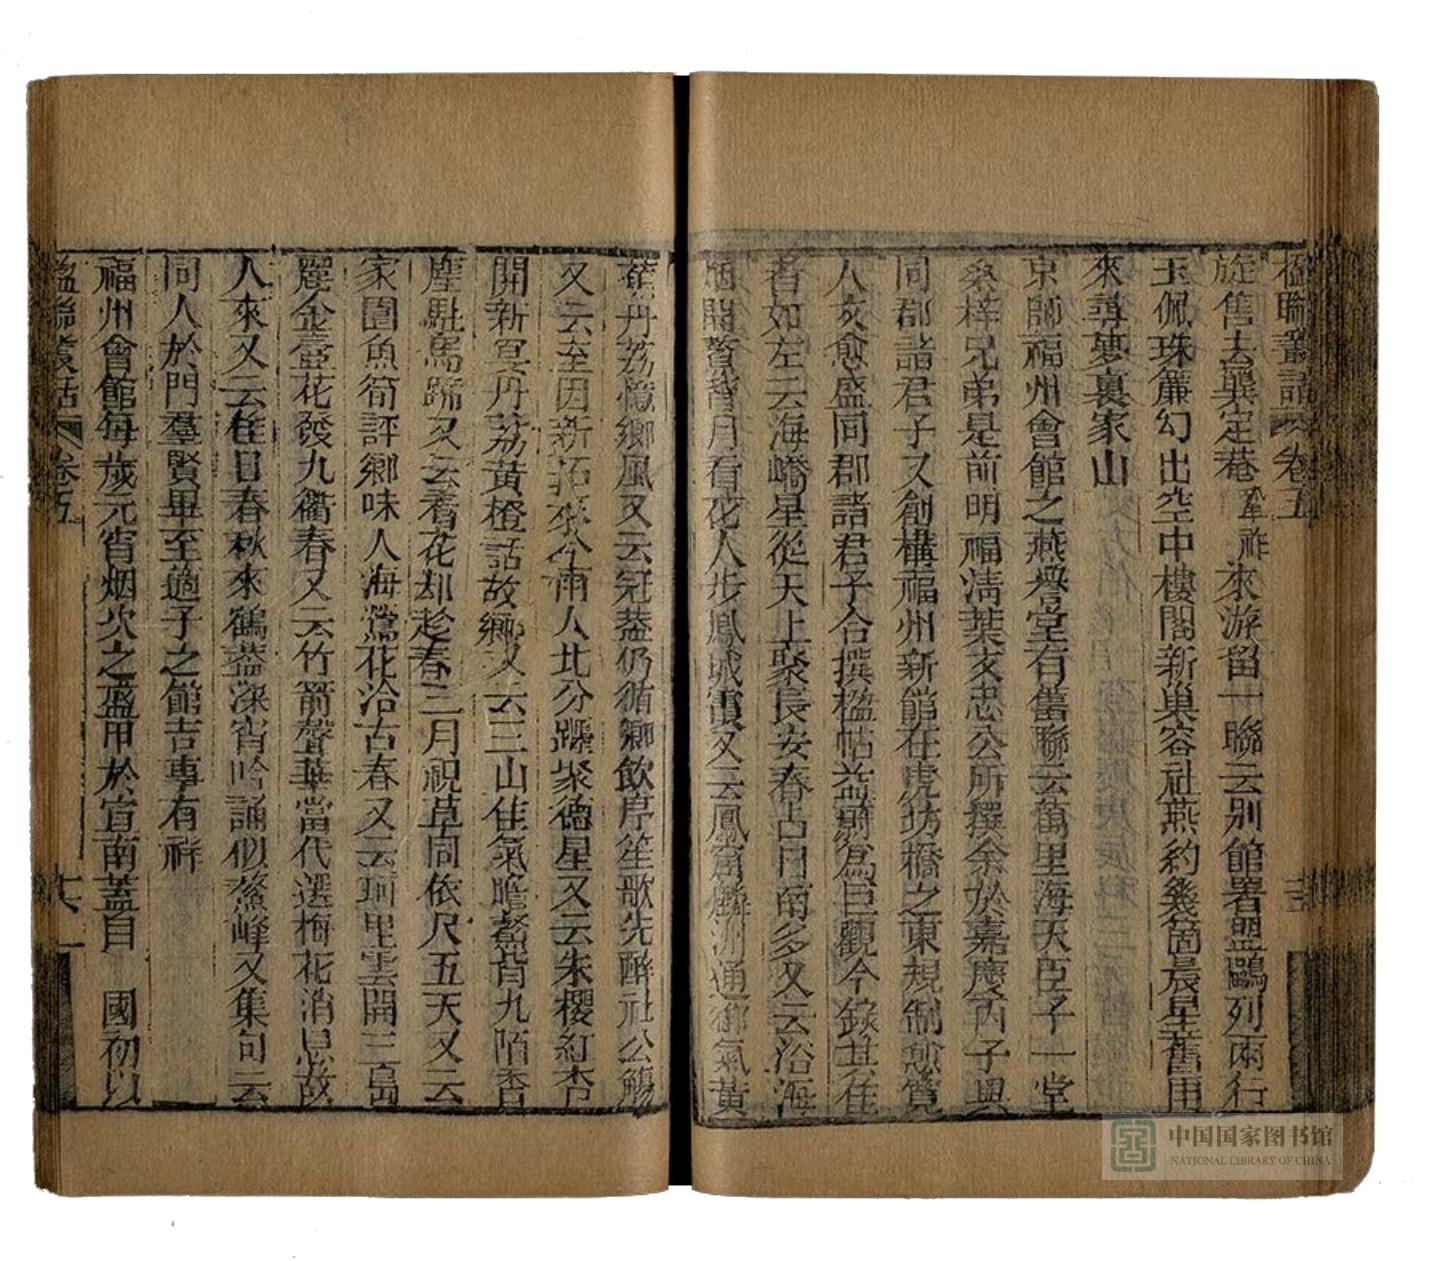 楹聯叢話 卷五
旋舊去巽定菴鞏祚來游留一聯云別館署盟鷗列兩行
玉佩珠簾幻出空中樓閣新巢容社燕約幾箇晨星舊雨
來尋夢裏家山
京師福州會館之燕譽堂有舊聯云萬里海天臣子一堂
桑梓兄弟是前明福淸葉文忠公所撰余於嘉慶丙子與
同郡諸君子又創構福州新館在虎坊橋之東規制愈寬
人亥愈盛同郡諸君子合撰楹帖益蔚爲巨觀今錄其佳
者如左云海嶠星從天上聚長安春占日南多又云浴海
開 皆月看花人步鳳城霞又云鳳 麟洲通御氣黃
蕉丹荔 鄉風又云冠蓋仍循鄉飲序笙歌先醉社公觴
又云室因新拓來今雨人北分躔聚德星又云朱櫻紅杏
開新 丹荔黃橙話故鄉又云三山佳氣瞻鼇背九陌香
塵駐馬蹄又云看花却趁春三月視草同依尺五天又云
家園魚筍評鄉味人海鶯花洽古春又云珂里雲開三島
麗金臺花發九衢春又云竹箭聲華當代選梅花消息故
人來又云桂日春秋來鶴蓋深宵 誦似鰲峰又集句云
同人於門羣賢畢至適子之館吉事有祥
福州會館每歲元宵烟火之盛甲於宣南蓋自 國初以
楹聯叢話 卷五
中国国家图书馆
NATIONAL LIBRARY OF CHINA